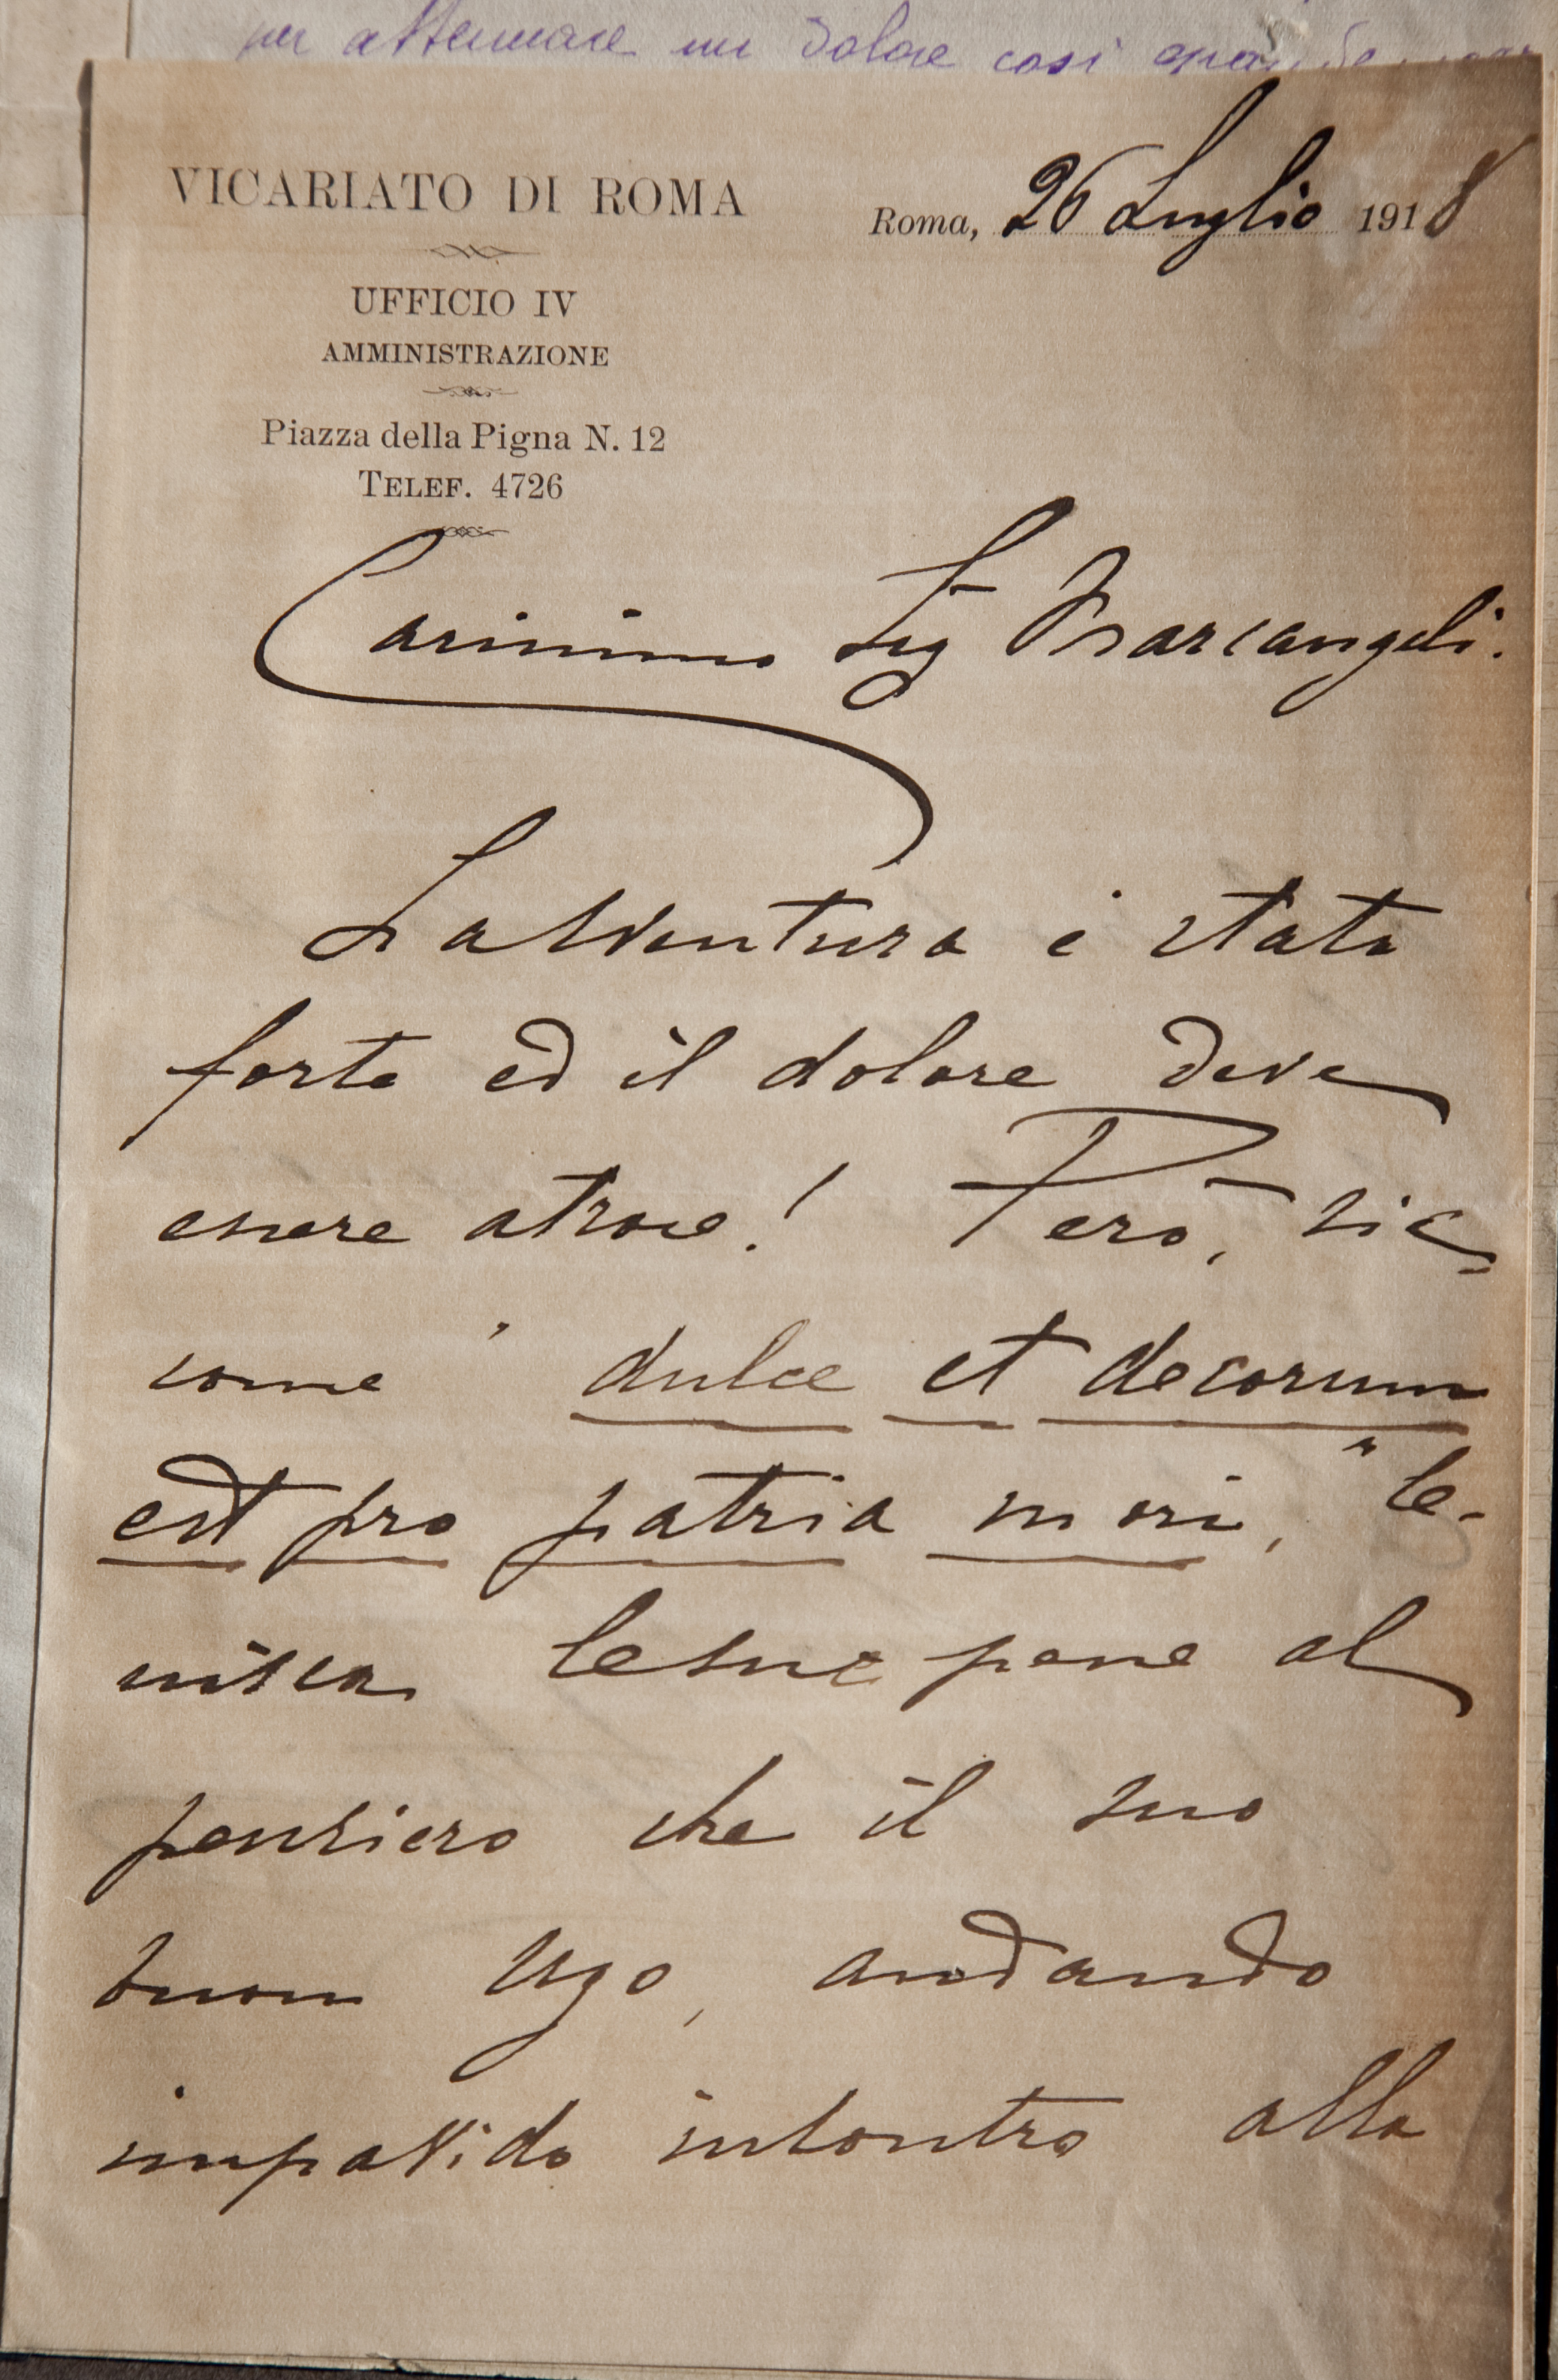 per attenuare un dolore così
VICARIATO DI ROMA
Roma, 26 Luglio 1918
UFFICIO IV
AMMINISTRAZIONE
Piazza della Pigna N. 12
TELEF. 4726
Carissimo Sig Marcangeli.
La sventura è stata
forte ed il dolore deve
essere atroce! Però, sic
come " dulce et decorum
est pro patria mori, " le-
nisca le sue pene al
pensiero che il suo
buon Ugo, andando
impavido incontro alla